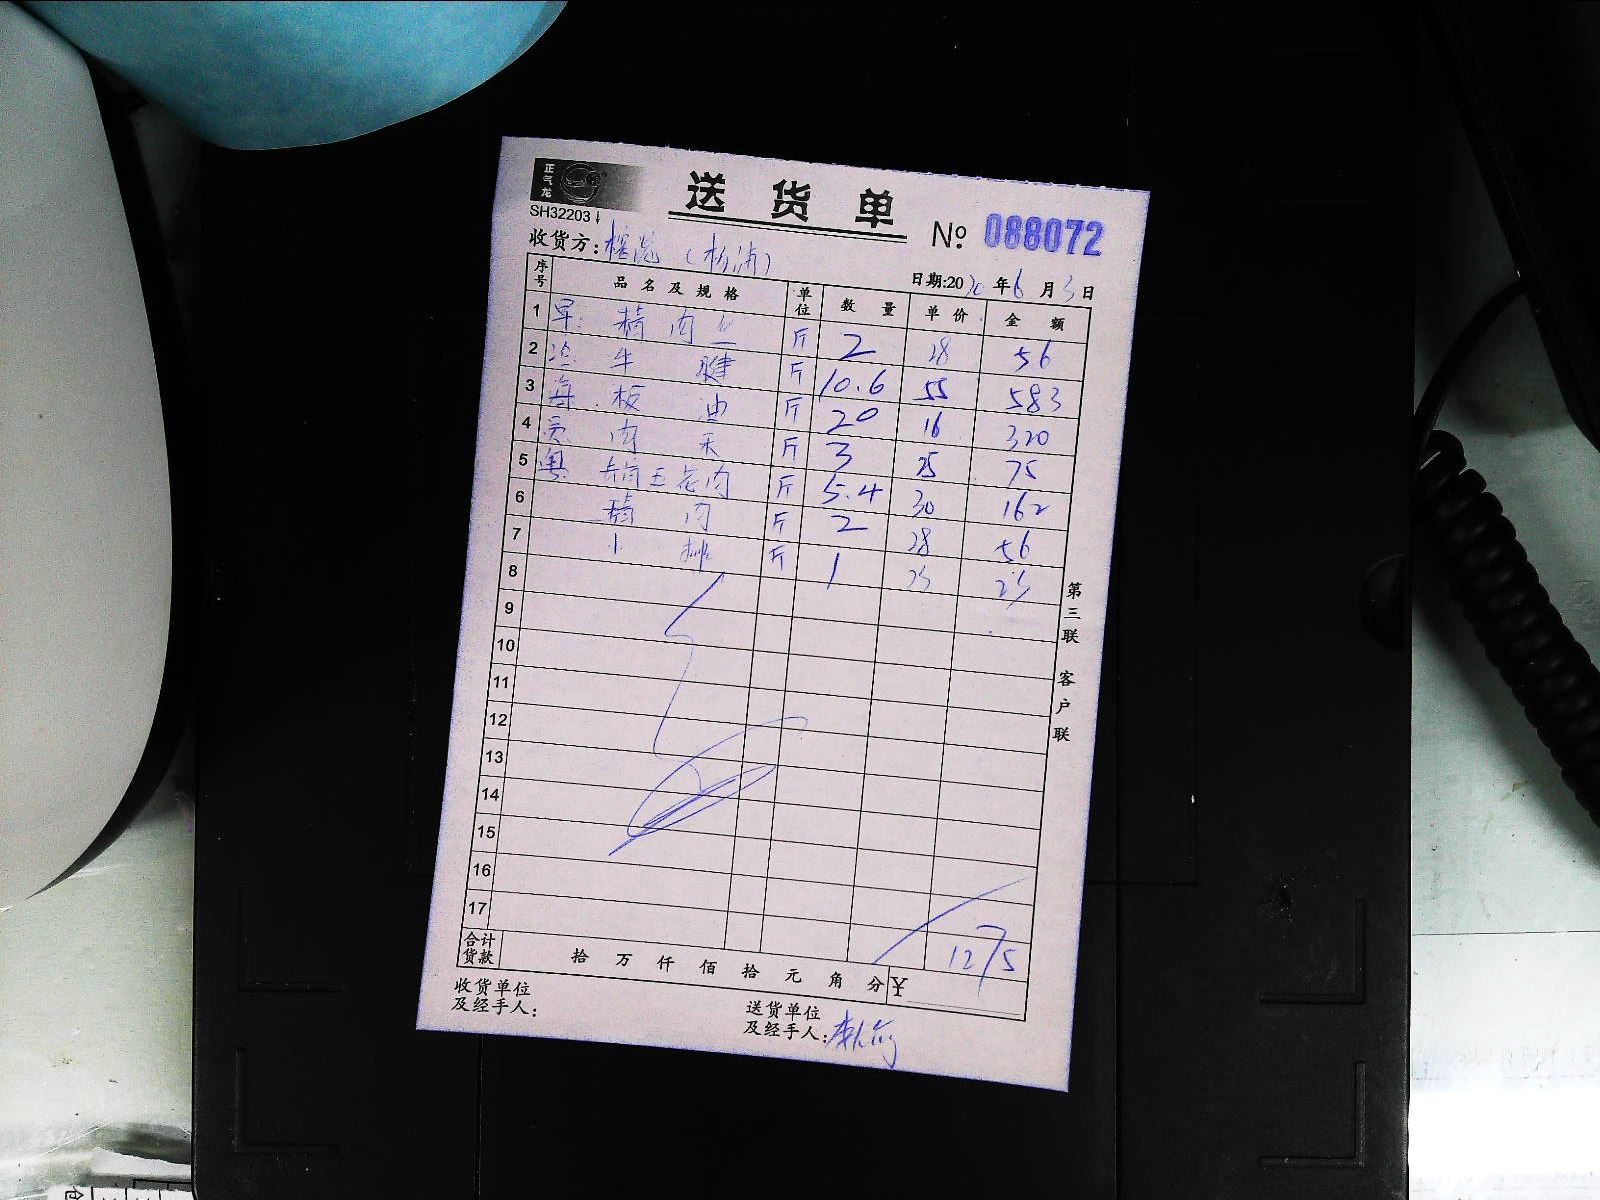 正气龙
送货单
SH32203
№ 088072
收货方: (杨浦)
日期:2020年6月3日
序号 品名及规格 单位 数量 单价 金额
1 早: 精肉丝 斤 2 28 56
2 牛腱 斤 10.6 55 583
3 板油 斤 20 16 320
4 肉 斤 3 25 75
5 奥 五花肉 斤 5.4 30 162
6 精肉 斤 2 28 56
7 小排 斤 1 23 23
8
9
10
11
12
13
14
15
16
17
1275
合计货款 拾 万 仟 佰 拾 元 角 分 ¥
第三联 客户联
收货单位
及经手人:
送货单位
及经手人: